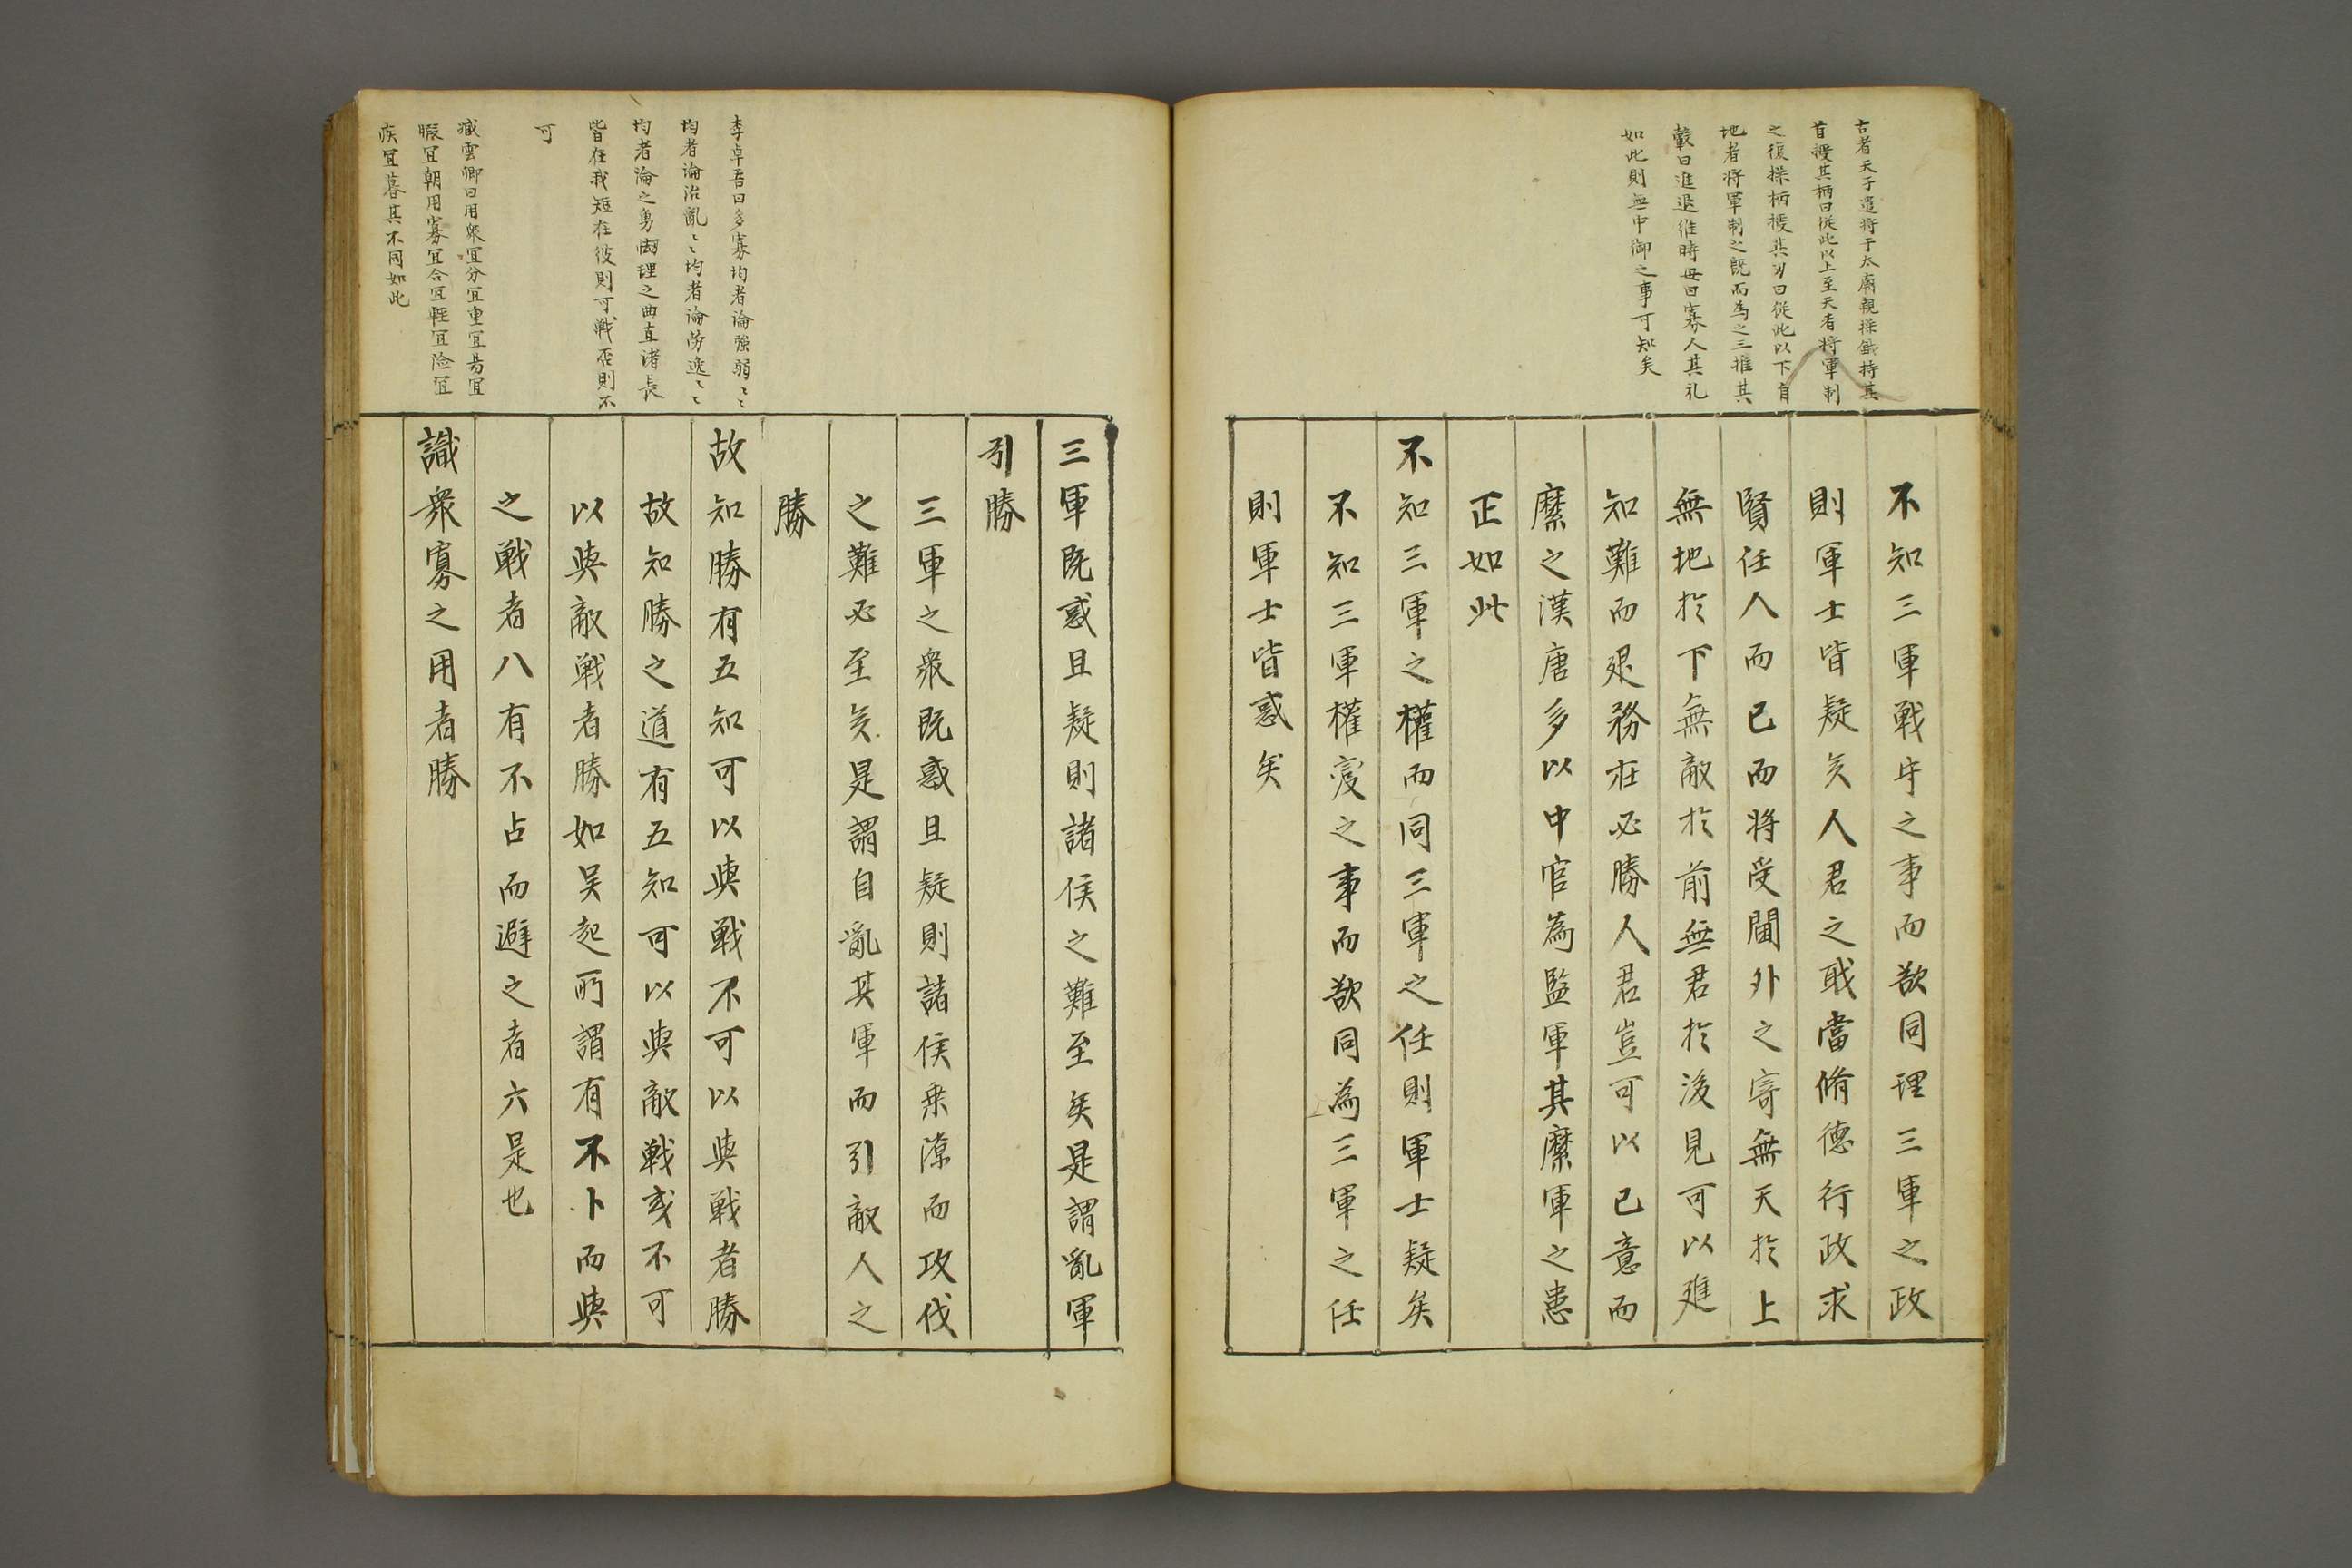 古者天子遣將于太廟親操鉞持其
首授其柄曰從此以上至天者將軍制
之復操柄授其刃曰從此以下自
地者將軍制之既而為之三推其
轂曰進退維時毋曰寡人其礼
如此則無中御之事可知矣
不知三軍戦守之事而欲同理三軍之政
則軍士皆疑矣人君之職當脩德行政求
賢任人而已而將受閫外之寄無天於上
無地於下無敵於前無君於後見可以進
知難而退務在必勝人君豈可以已意而
縻之漢唐多以中官為監軍其縻軍之患
正如此
不知三軍之權而同三軍之任則軍士疑矣
不知三軍權変之事而欲同為三軍之任
則軍士皆惑矣
李卓吾曰多寡均者論强弱〻〻
均者論治亂〻〻均者論劳逸〻〻
均者論之勇怯理之曲直諸長
皆在我短在彼則可戦否則不
可
臧雲卿曰用衆宜分宜重宜易宜
暇宜朝用寡宜合宜軽宜险宜
疾宜暮其不同如此
三軍既惑且疑則諸侯之難至矣是謂亂軍
引勝
三軍之衆既惑且疑則諸侯乗隙而攻伐
之難必至矣是謂自亂其軍而引敵人之
勝
故知勝有五知可以與戦不可以與戦者勝
故知勝之道有五知可以與敵戦或不可
以與敵戦者勝如吴起所謂有不卜而與
之戦者八有不占而避之者六是也
識衆寡之用者勝